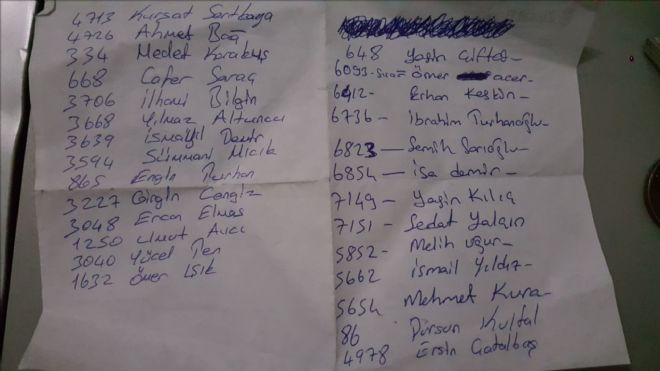 4713 Kürsat Sarıboğa
4726 Ahmet Boğ
334 Medet Karakuş
668 Cafer Saraç
3706 ilhami Bilgin
3668 Yılmaz Altuncu
3639 ismayil Demir
3594 Sümmani Micik
865 Engin Turhan
3227 Girgin Cengiz
3048 Ercan Elmas
1250 Umut Avcı
3040 Yücel Ten
1632 Ömer Işık
648 Yasin Çiftçi-
6093- Ömer acer-
6412- Erhan Keskin-
6736- ibrahim Turhanoğlu-
6823 — Semih Sarıoğlu-
6854 — isa demir-
7149 — Yasin Kılıç
7151 - Sedat Yalçın
5852- Melih uğur-
5662 ismail Yıldız-
5654 Mehmet Kura-
86 Dursun Kultal
4978 Ersin Çatalbaş